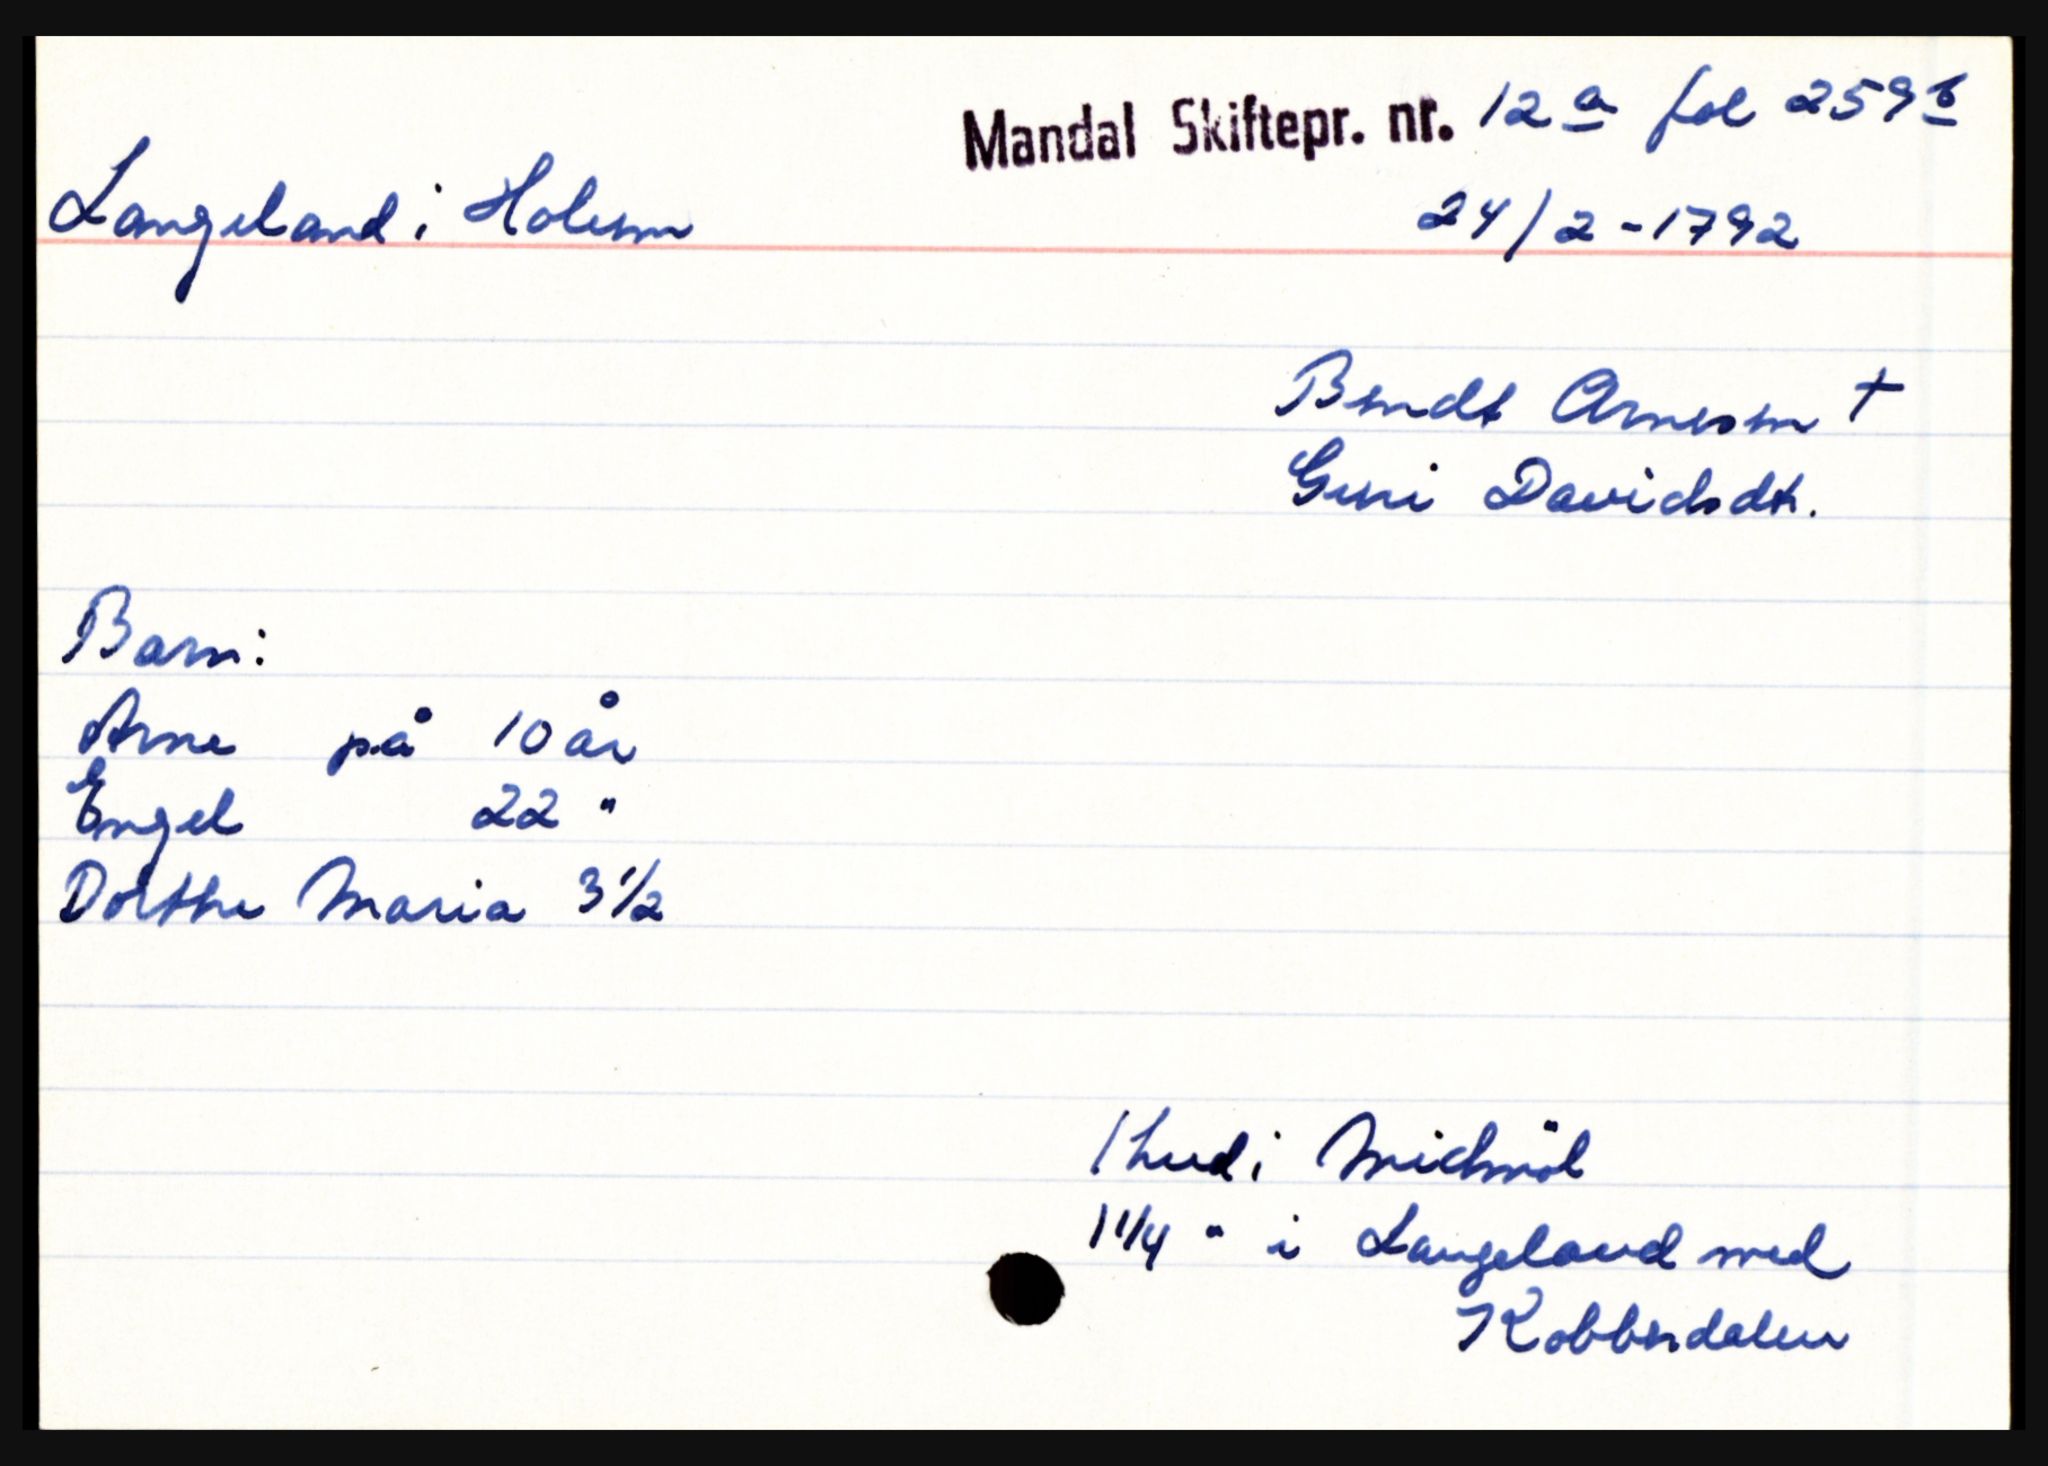 Mandal Skiftepr. nr. 12a fol 259b
Langeland i Holum
24/2-1792
Bendt Arnesen †
Guri Davidsdt.
Barn:
Arne på 10 år
Engel 22 "
Dorthe Maria 3 1/2
1 hud i
1 1/4 " i Langeland med
Kobberdalen